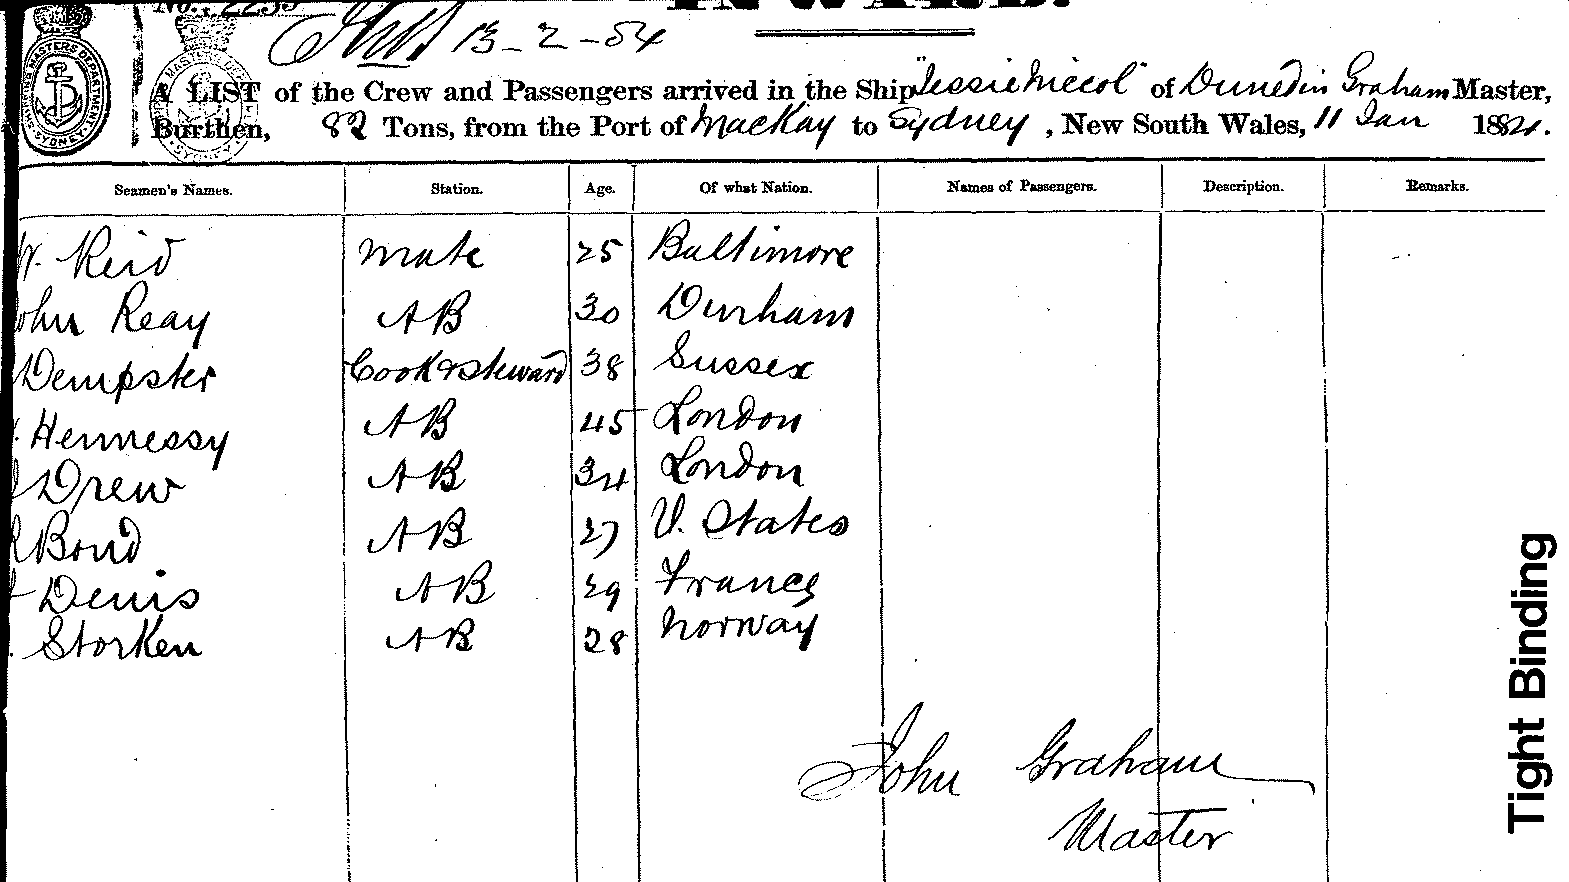 No. 2233
INWARD.
13-2-84
A LIST of the Crew and Passengers arrived in the Ship "Jessie Niccol" of Dunedin Graham Master,
Burthen, 82 Tons, from the Port of Mackay to Sydney, New South Wales, 11 Jan 1884.
Seamen's Names. Station. Age. Of what Nation. Names of Passengers. Description. Remarks.
W. Reid Mate 25 Baltimore
John Reay AB 30 Durham
Dempster Cook & Steward 38 Sussex
Hennessy AB 45 London
Drew AB 34 London
R Bond AB 27 U. States
Denis AB 29 France
Storken AB 28 Norway
John Graham
Master
Tight Binding